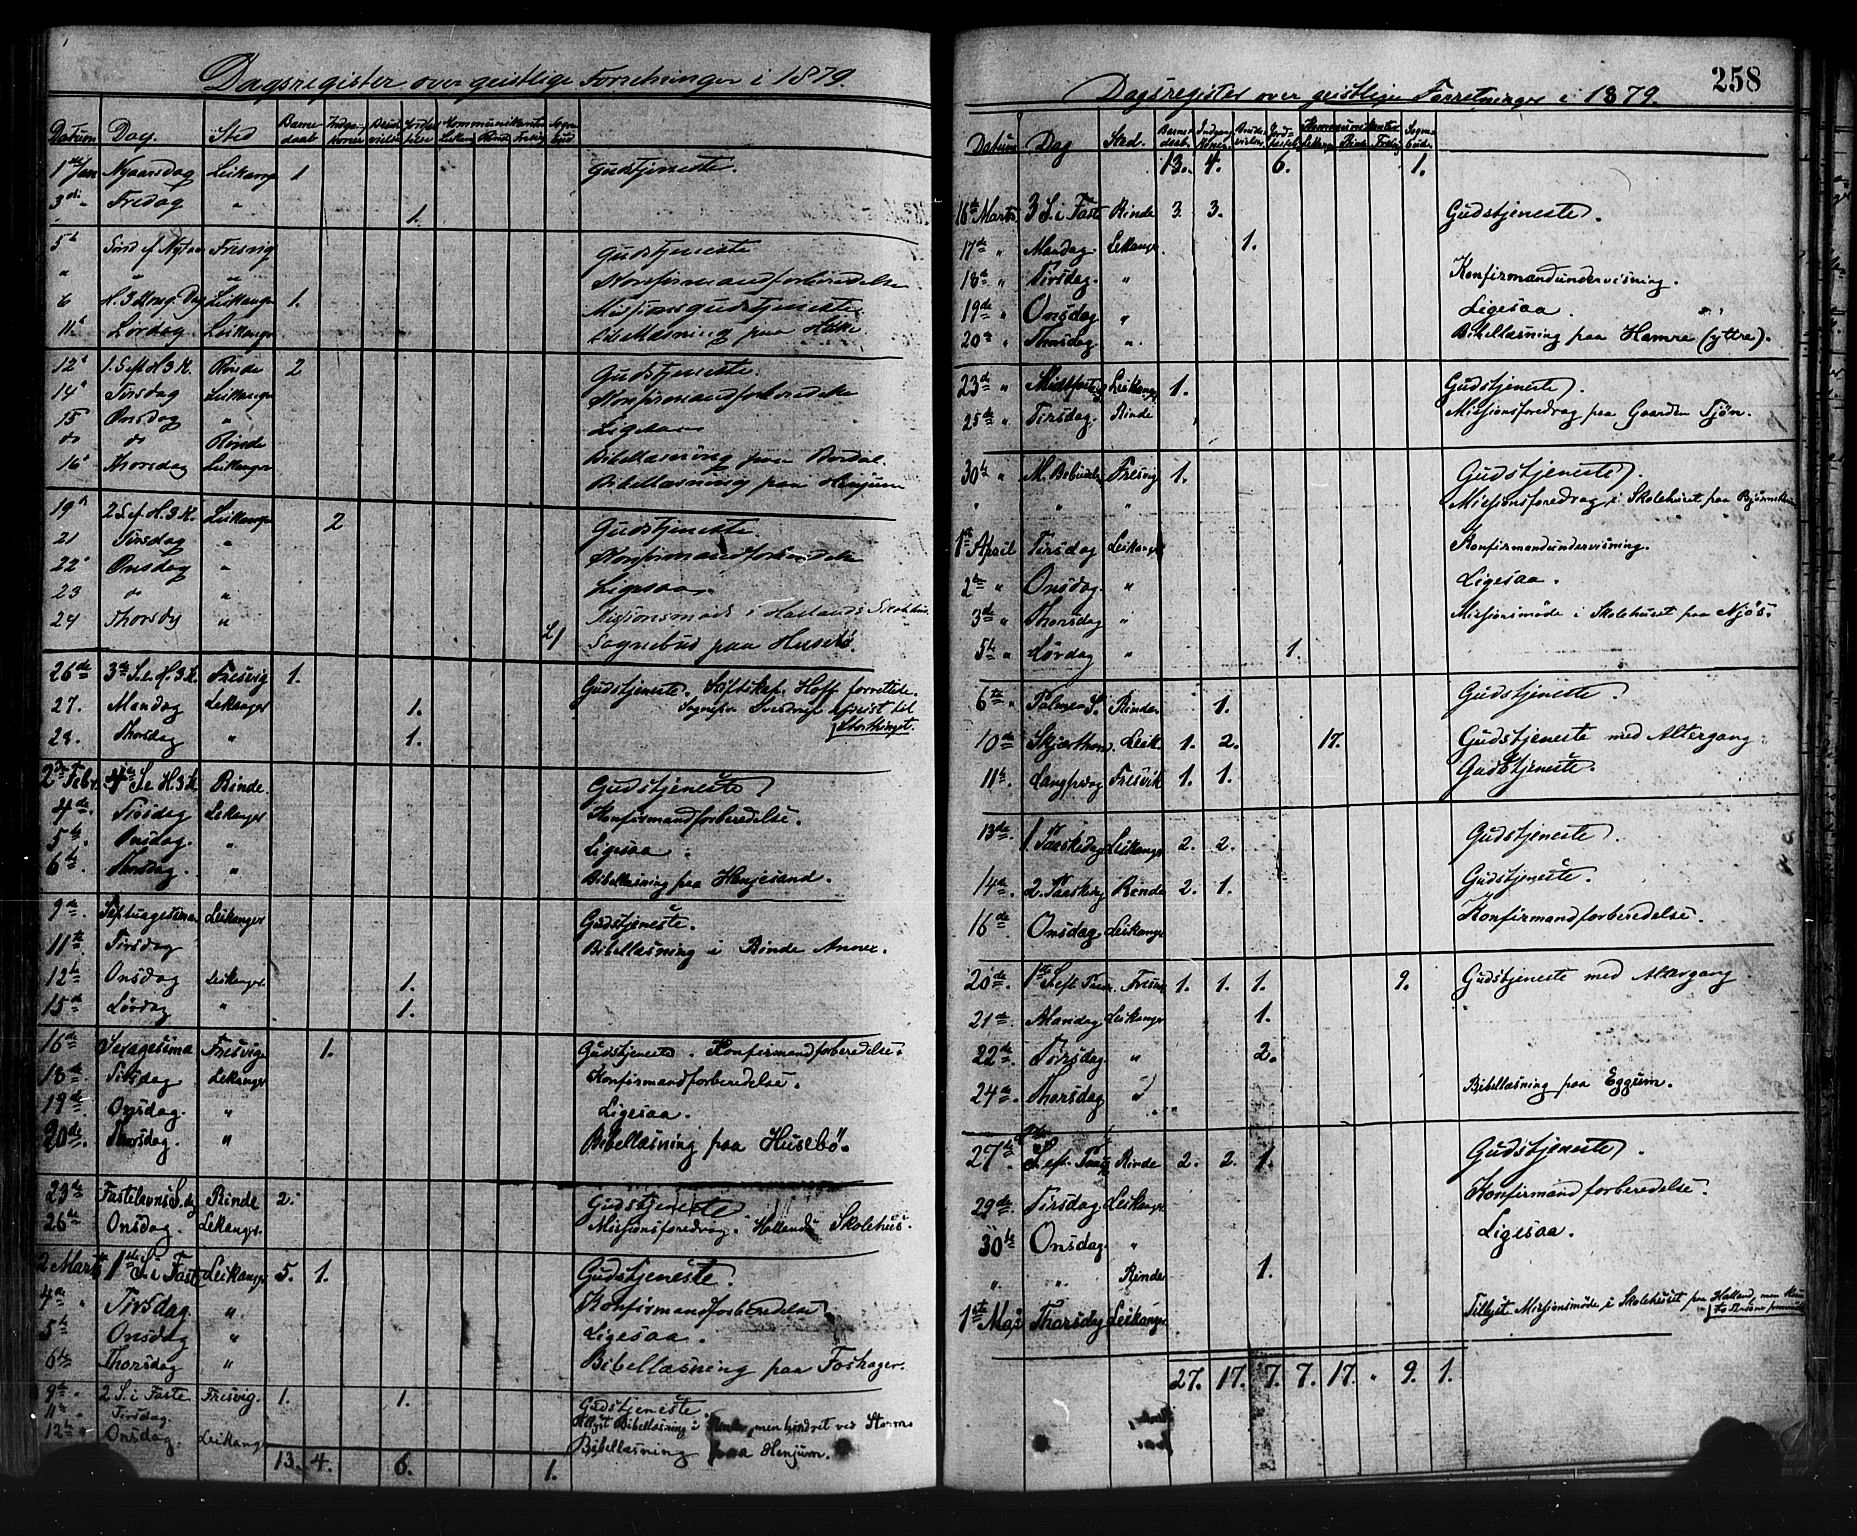 Dagsregister over geistlige Forretninger i 1879.
Datum Dag. Sted Barnedaab Indga. koner Jordfæstelse Kommunikanter Leikang Rinde Fresvig Sognebud
1ste Jan Nyaarsdag Leikang 1 Gudstjeneste.
3di " Fredag " 1.
5te Sønd ef Nytaar Fresvig Gudstjeneste
" " " Konfirmandforberedelse
6 H. 3 Kong. Dag Leikanger 1. Missionsgudstjeneste
11te Lørdag Leikanger Bibellæsning paa
12te 1. S ef H 3 K. Rinde 2 Gudstjeneste.
14de Tirsdag Leikanger Konfirmandforberedelse
15 Onsdag " Ligesaa
do do Rinde Bibellæsning paa
16de Thorsdag Leikanger Bibellæsning paa Henjum
19de 2 S. ef H. 3 K. Leikanger 2 Gudstjeneste.
21 Tirsdag " Konfirmandforberedelse
22de Onsdag " Ligesaa.
23 do " Missionsmøde i Hallands Skolehus
24 Thorsdg " 1 Sognebud paa Husebø.
26de 3de S. e. H. 3 K. Fresvig 1. Gudstjeneste. Hoff forrettede.
27. Mandag Leikanger 1. Sognepr Sverdrup afreist til
28. Thorsdag " 1. Storthinget.
2den Febr. 4de S. e. H. 3 K Rinde. Gudstjeneste
4de. Tirsdag Leikanger Konfirmandforberedelse.
5te. Onsdag. " Ligesaa.
6te Thorsdag. " Bibellæsning paa Henjesand.
9de. Septuagesima Leikanger Gudstjeneste.
11te Tirsdag Bibellæsning i Rinde Annex.
12te Onsdag Leikanger. 1.
15de Lørdag " 1.
16de Sexagesima Fresvig. 1. Gudstjeneste. Konfirmandforberedelse.
18de Tirsdag Leikanger Konfirmandforberedelse.
19de Onsdag. " Ligesaa.
20de. Thorsdag. " Bibellæsning paa Husebø.
23de Fastelavns S.dg Rinde 2. Gudstjeneste
26de Onsdag. Leikanger. Missionsforedrag. Hallands Skolehus.
2 Marts 1ste S. i Fast Leikanger 5. 1. Gudstjeneste.
4de " Tirsdag " Konfirmandforberedelse
5te Onsdag " Ligesaa.
6te Thorsdag " Bibellæsning paa Foshager.
9de " 2 S. i Faste Fresvig. 1. 1. Gudstjeneste
11te " Tirsdag. Tillyst Bibellæsning i Rinde, men hindret ved Storm
12te " Onsdag. Leikanger Bibellæsning paa Henjum.
13. 4. 6. 1.
258
Dagsregister over geistlige Forretninger i 1879.
Datum Dag Sted. Barnedaab. Indgan. koner. Jordfæstel. Kommunikanter Leikang. Rinde Fresvig Sognebud.
13. 4. 6. 1.
16de Marts 3 S. i Fast Rinde 3. 3. Gudstjeneste.
17de " Mandag. Leikanger 1.
18de " Tirsdag. " Konfirmandundervisning.
19de " Onsdag " Ligesaa.
20de " Thorsdag. " Bibellæsning paa Hamre (yttre).
23de " Midtfaste Leikanger 1. Gudstjeneste.
25de " Tirsdag. Rinde Missionsforedrag paa Gaarden Tjøn.
30te " M. Bebudels. Fresvig 1. Gudstjeneste.
" " " Missionsforedrag i Skolehuset paa
1ste April Tirsdag Leikanger Konfirmandundervisning.
2den " Onsdag " Ligesaa.
3de " Thorsdag " Missionsmøde i Skolehuset paa Njøs.
5te " Lørdag " 1.
6te " Palme S. Rinde. 1. Gudstjeneste.
10de Skjærthors. Leik. 1. 2. 17. Gudstjeneste med Altergang.
11te Langfredag Fresvik 1. 1. Gudstjeneste.
13de 1 Paaskedag Leikanger 2. 2. Gudstjeneste.
14de 2. Paaskedg Rinde 2. 1. Gudstjeneste.
16de Onsdag. Leikanger Konfirmandforberedelse.
20de. 1ste S. eft. Paas. Fresvig 1. 1. 1. 9. Gudstjeneste med Altergang
21de. Mandag Leikanger 1.
22de. Tirsdag. " 2.
24de. Thorsdag " Bibellæsning paa Eggum.
27de. S. eft. Paas Rinde 2. 2. 1. Gudstjeneste.
29de. Tirsdag. Leikanger Konfirmandforberedelse.
30te Onsdag. " Ligesaa.
" " Rinde 1.
1ste Mai Thorsdag Leikanger Tillyst Missionsmøde i Skolehuset paa Halland, men
27. 17. 7. 7. 17. " 9. 1.